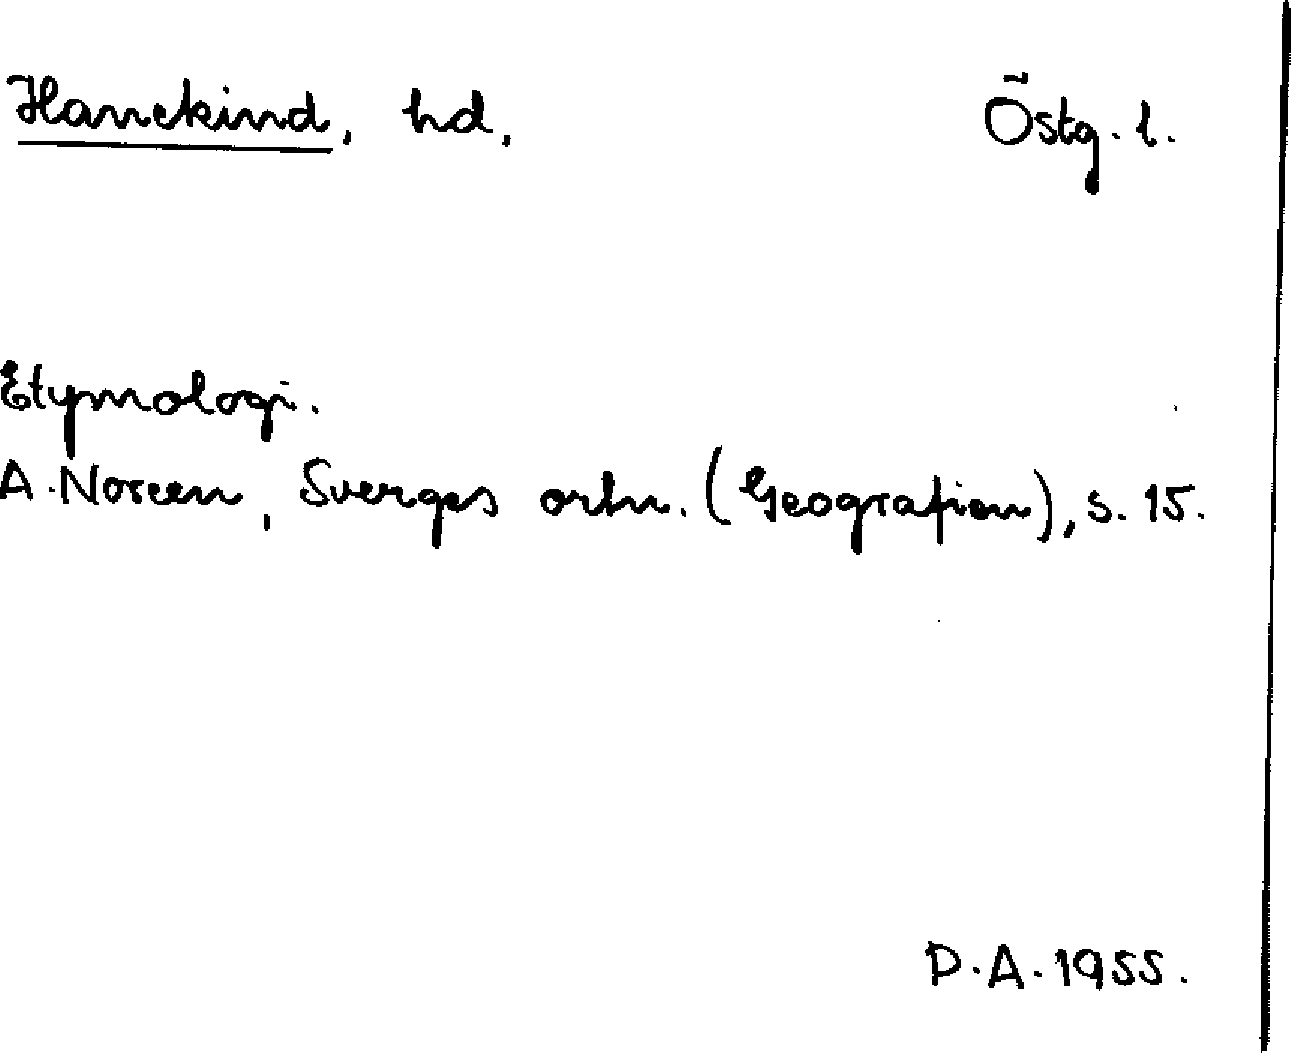 Hanekind, hd. Östg. l.
Etymologi.
A. Noreen, Sverges ortn. (Geografien), s. 15.
D. A. 1955.